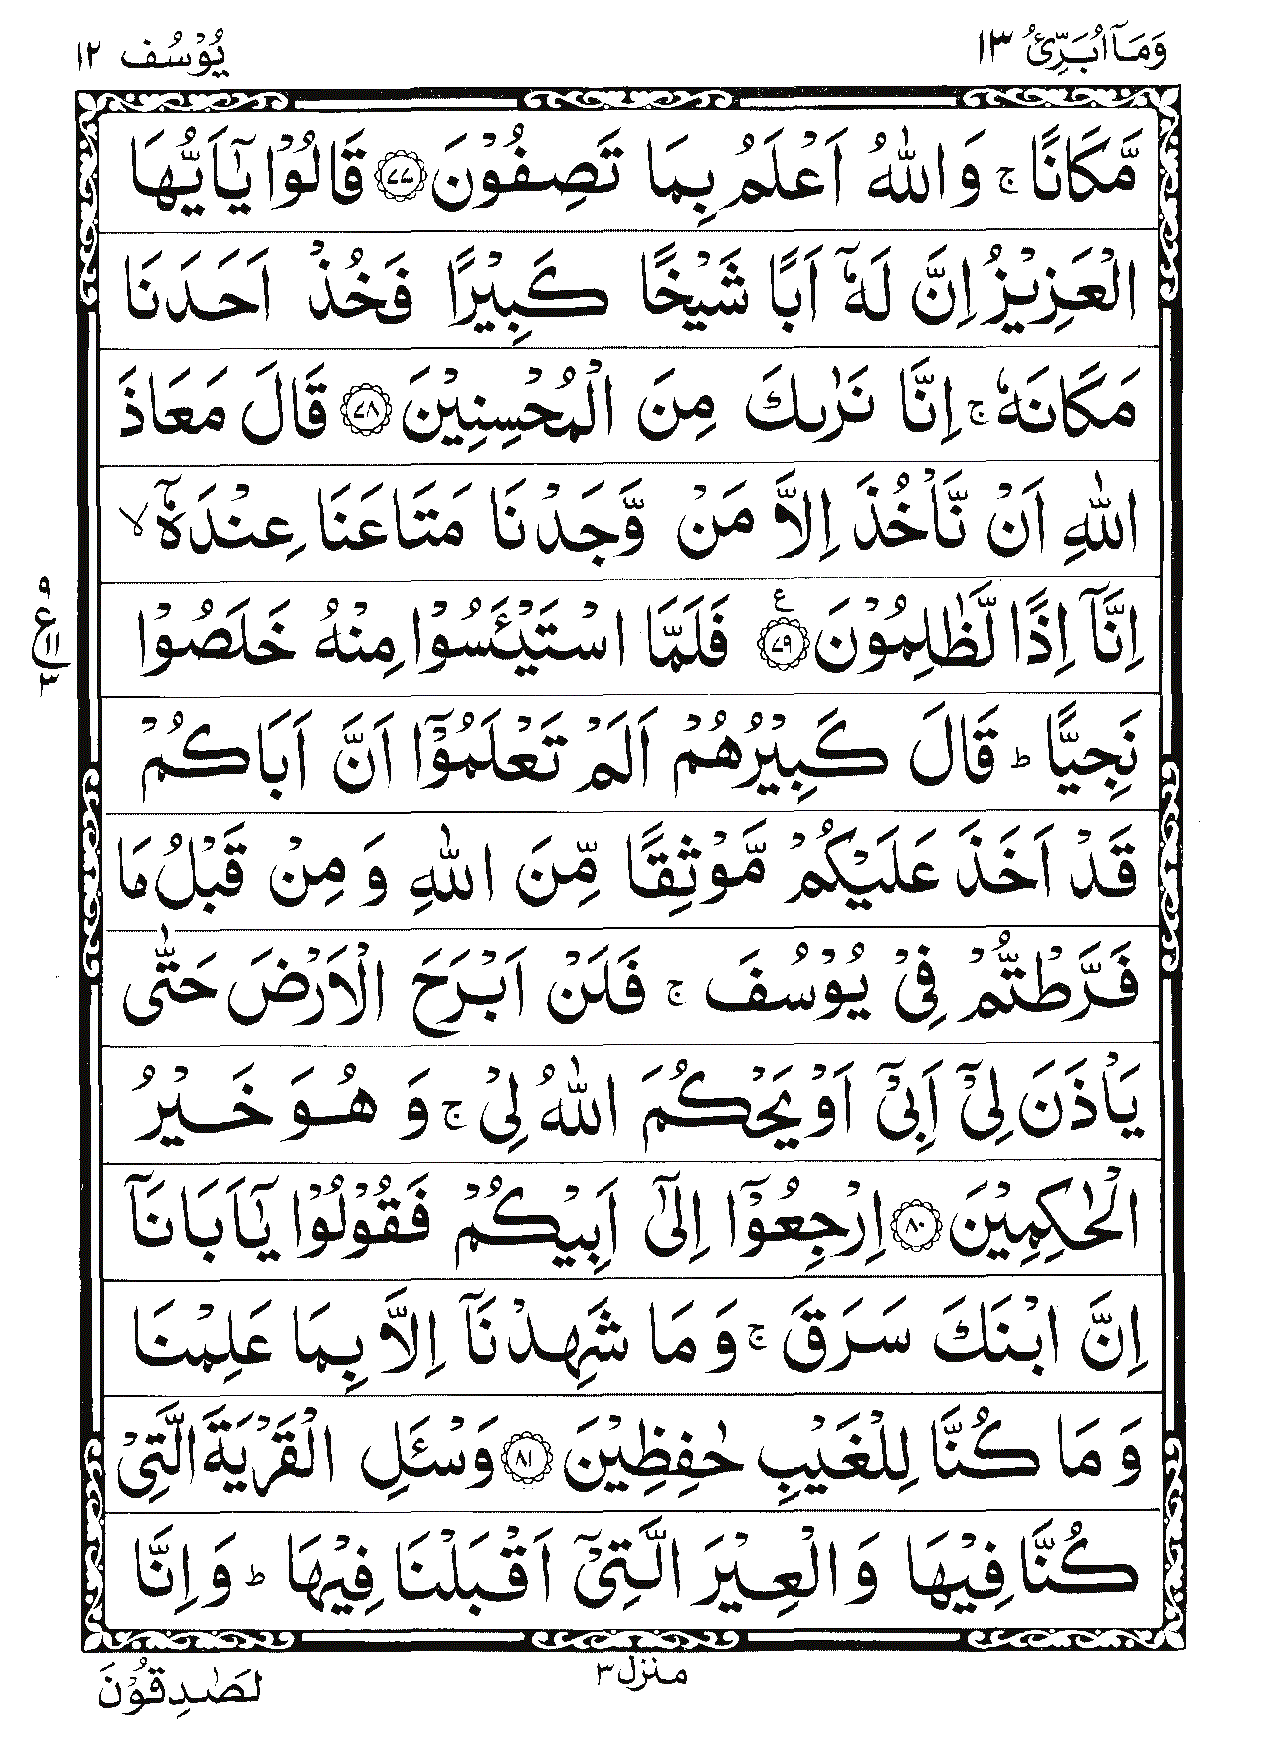 وَمَآ اُبَرِّئُ ١٣
يُوْسُف ١٢
مَّكَانًا ۚ وَاللّٰهُ اَعْلَمُ بِمَا تَصِفُوْنَ ﴿٧٧﴾ قَالُوْا يٰۤاَيُّهَا
الْعَزِيْزُ اِنَّ لَهٗۤ اَبًا شَيْخًا كَبِيْرًا فَخُذْ اَحَدَنَا
مَكَانَهٗ ۚ اِنَّا نَرٰىكَ مِنَ الْمُحْسِنِيْنَ ﴿٧٨﴾ قَالَ مَعَاذَ
اللّٰهِ اَنْ نَّاْخُذَ اِلَّا مَنْ وَّجَدْنَا مَتَاعَنَا عِنْدَهٗۤ ۙ
اِنَّاۤ اِذًا لَّظٰلِمُوْنَ ﴿٧٩﴾ ع فَلَمَّا اسْتَيْـَٔسُوْا مِنْهُ خَلَصُوْا
٩
ع
١١
٣
نَجِيًّا ؕ قَالَ كَبِيْرُهُمْ اَلَمْ تَعْلَمُوْۤا اَنَّ اَبَاكُمْ
قَدْ اَخَذَ عَلَيْكُمْ مَّوْثِقًا مِّنَ اللّٰهِ وَمِنْ قَبْلُ مَا
فَرَّطْتُّمْ فِيْ يُوْسُفَ ۚ فَلَنْ اَبْرَحَ الْاَرْضَ حَتّٰى
يَاْذَنَ لِيْۤ اَبِيْۤ اَوْ يَحْكُمَ اللّٰهُ لِيْ ۚ وَهُوَ خَيْرُ
الْحٰكِمِيْنَ ﴿٨٠﴾ اِرْجِعُوْۤا اِلٰۤى اَبِيْكُمْ فَقُوْلُوْا يٰۤاَبَانَاۤ
اِنَّ ابْنَكَ سَرَقَ ۚ وَمَا شَهِدْنَاۤ اِلَّا بِمَا عَلِمْنَا
وَمَا كُنَّا لِلْغَيْبِ حٰفِظِيْنَ ﴿٨١﴾ وَسْـَٔلِ الْقَرْيَةَ الَّتِيْ
كُنَّا فِيْهَا وَالْعِيْرَ الَّتِيْۤ اَقْبَلْنَا فِيْهَا ؕ وَاِنَّا
منزل ٣
لَصٰدِقُوْنَ